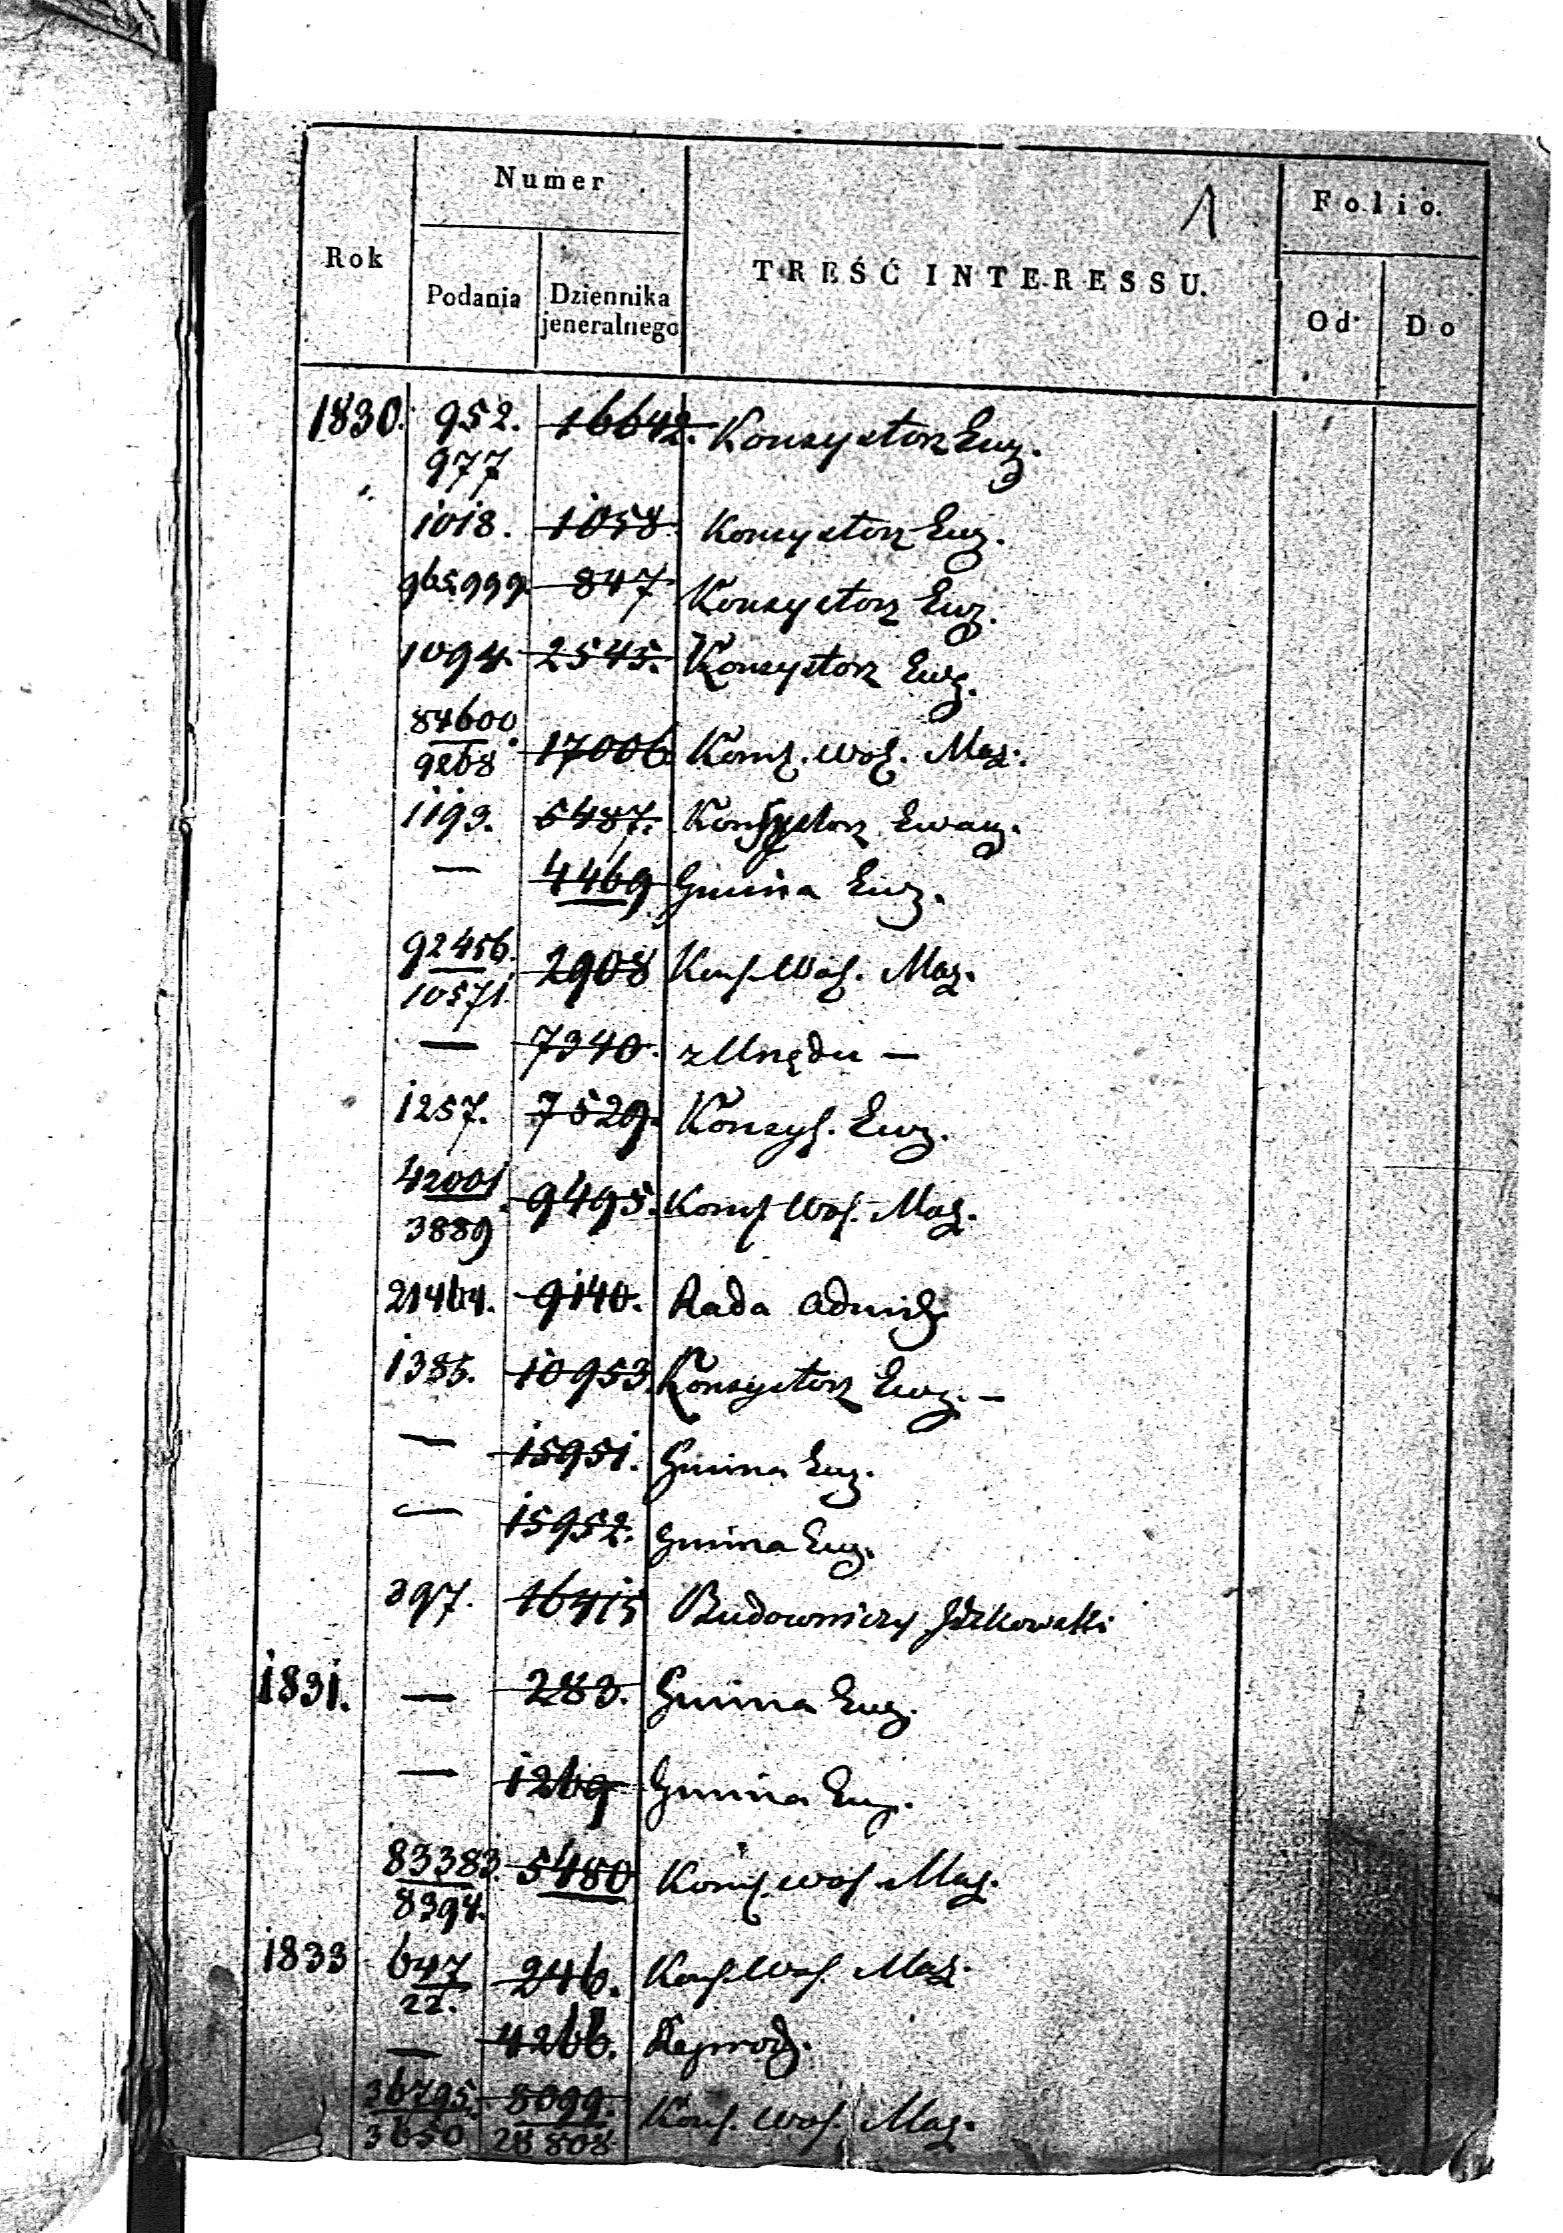 Numer
1
Folio.
Rok
TREŚĆ INTERESSU.
Podania Dziennika jeneralnego
Od Do
1830. 952. 16642. Konsystorz Ewg.
977
1018. 1058. Konsystorz Ewg.
965.999. 847 Konsystorz Ewg.
1094. 2545. Konsystorz Ewg.
84600
9268 17006 Koms. Woj. Maz.
1193. 5487. Konsystorz Ewang.
— 4469 Gmina Ewg.
92456.
10571. 2908 Koms. Woj. Maz.
— 7340. z Urzędu —
1257. 7529. Konsys. Ewg.
42001
3889 9495. Koms. Woj. Maz.
21464. 9140. Rada Admin.
1385. 10953. Konsystorz Ewg. —
— 15951. Gmina Ewg.
— 15952. Gmina Ewg.
397. 16415 Budowniczy
1831. — 283. Gmina Ewg.
— 1269 Gmina Ewg.
83383.
8394. 5480 Koms. Woj. Maz.
1833 647
22. 246. Koms. Woj. Maz.
— 4266.
36795.
3650 8099.
28808 Koms. Woj. Maz.